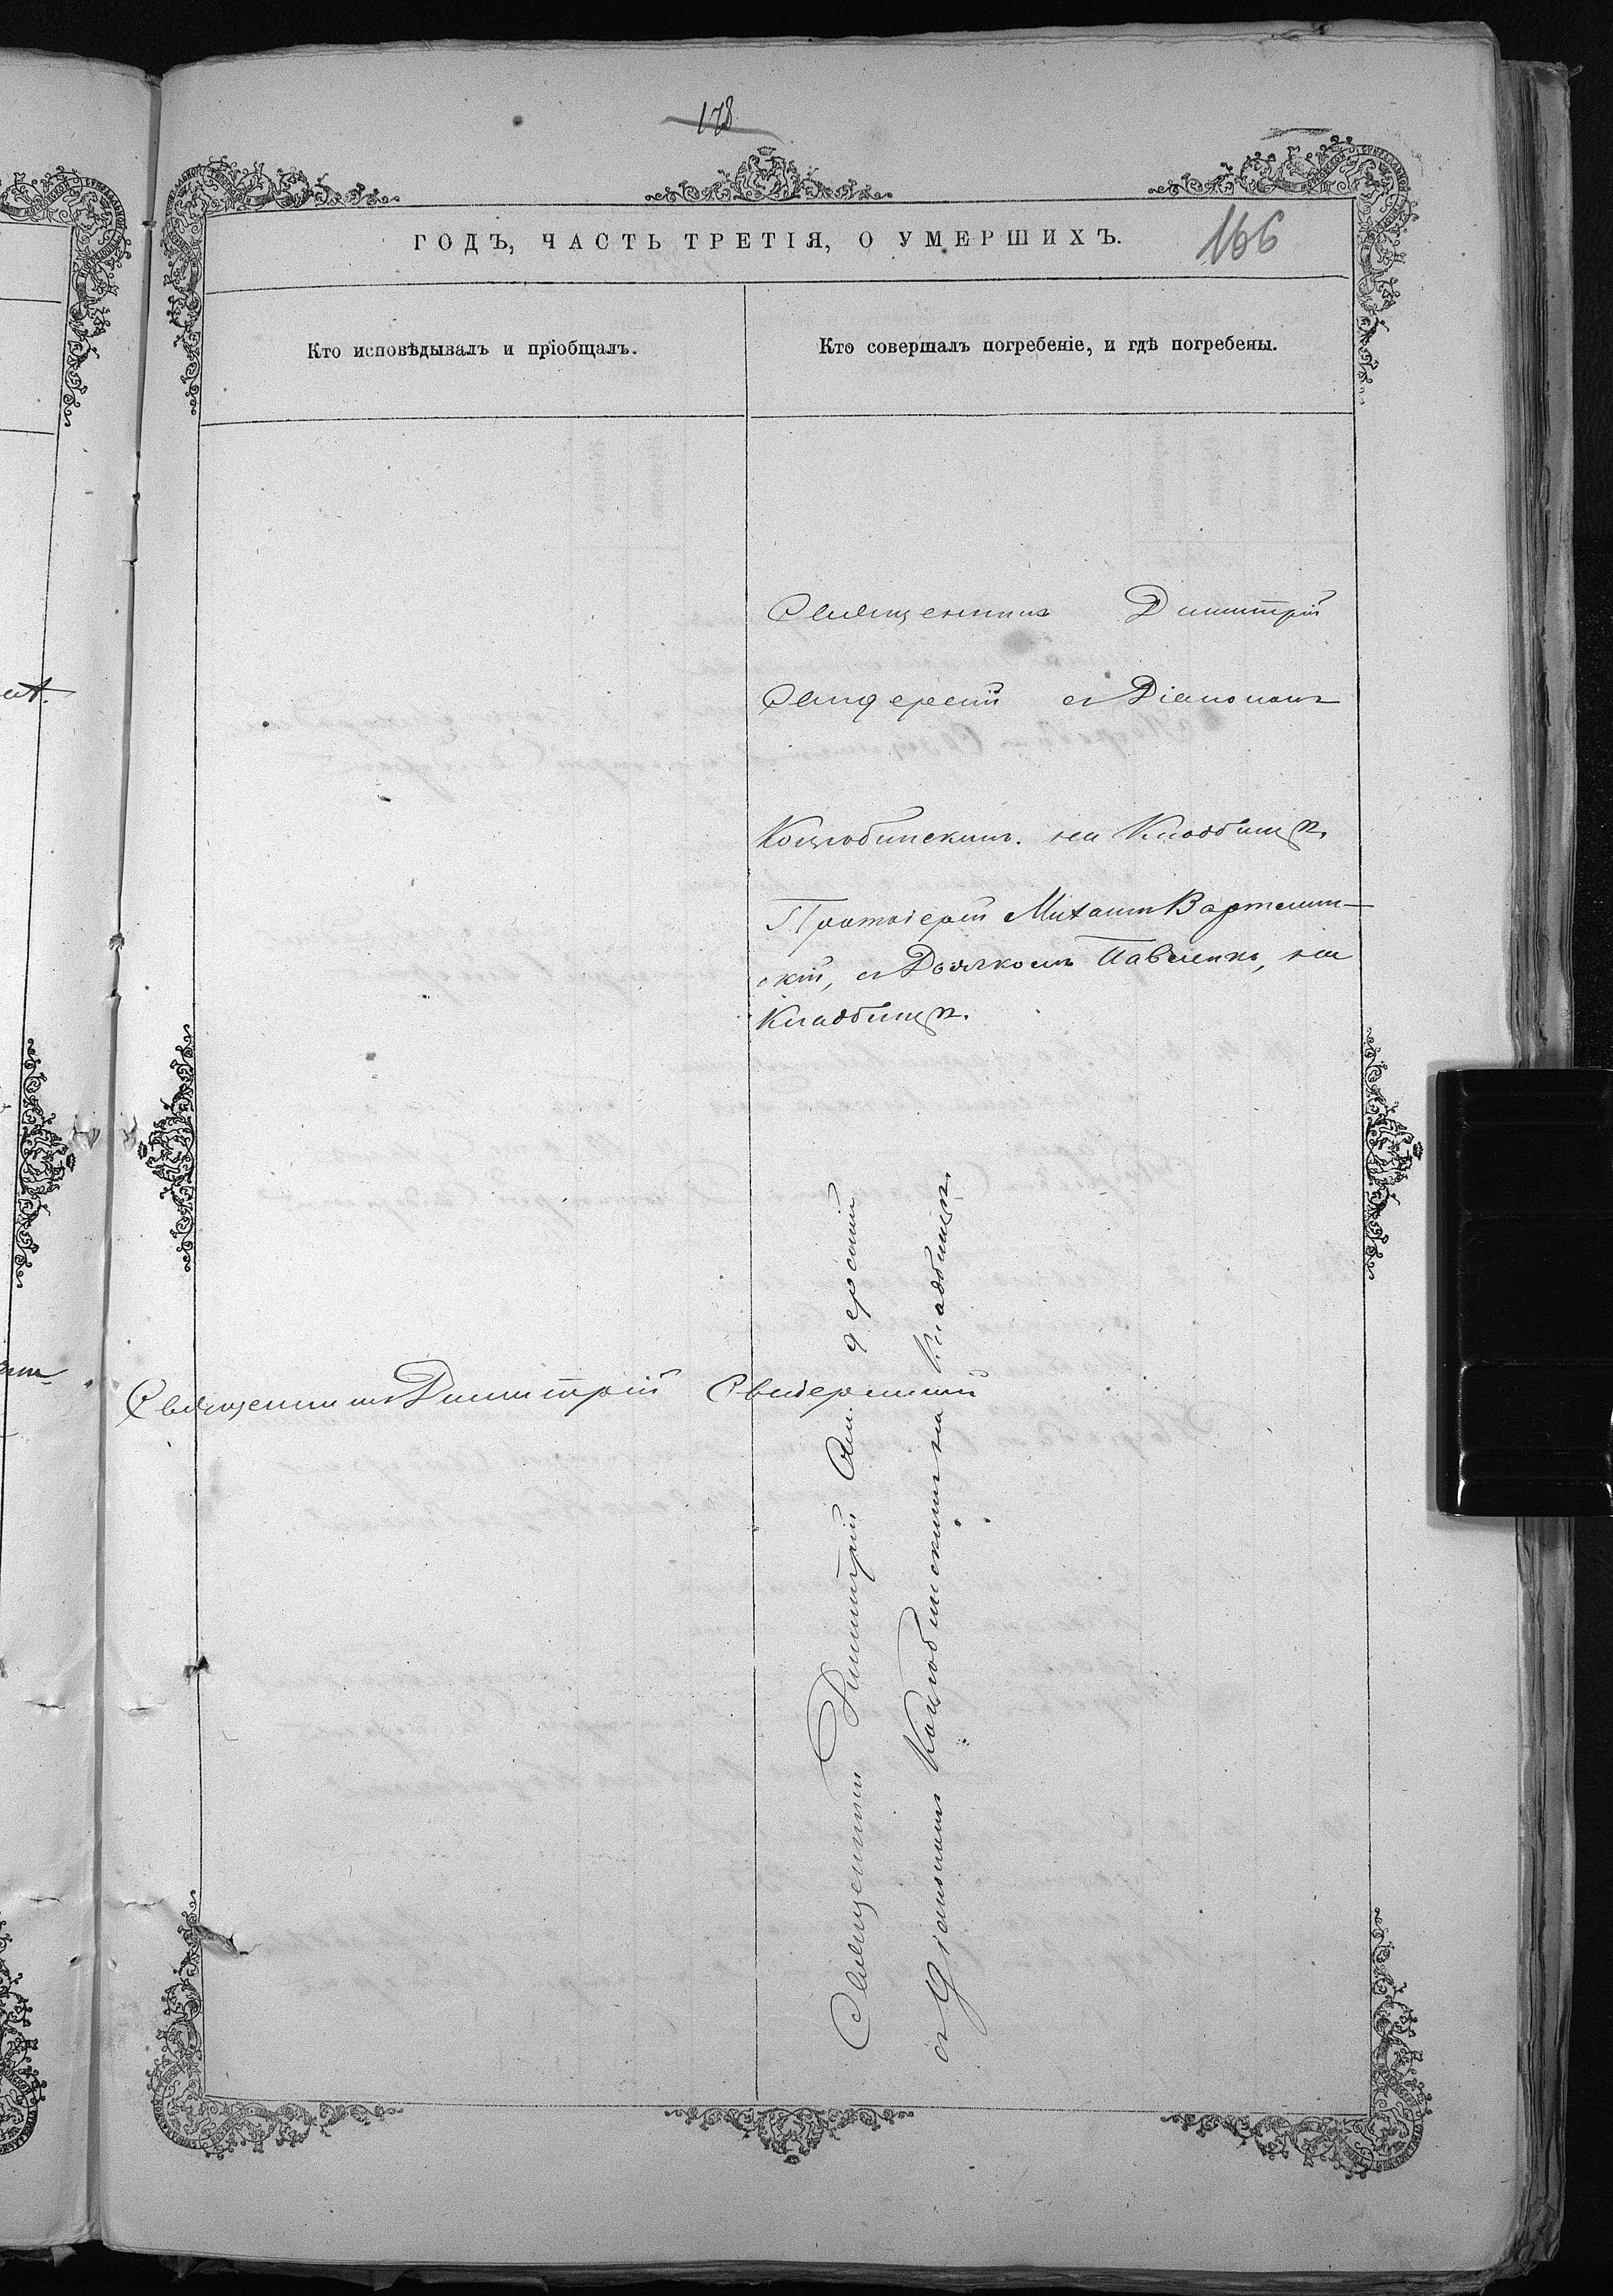 178
ГОДЪ, ЧАСТЬ ТРЕТІЯ, О УМЕРШИХЪ.
166
Кто исповѣдывалъ и пріобщалъ.
Кто совершалъ погребеніе, и гдѣ погребены.
Священникъ Димитрій
съ Діакономъ
Коцюбинскимъ. на Кладбищѣ.
Протоіерей Михаилъ Вартмин-
скій, съ Дьячкомъ Павленко, на
Кладбищѣ.
Священникъ Димитрій Свидерскій
Священникъ Димитрій
съ Діакономъ Коцюбинскимъ на Кладбищѣ.